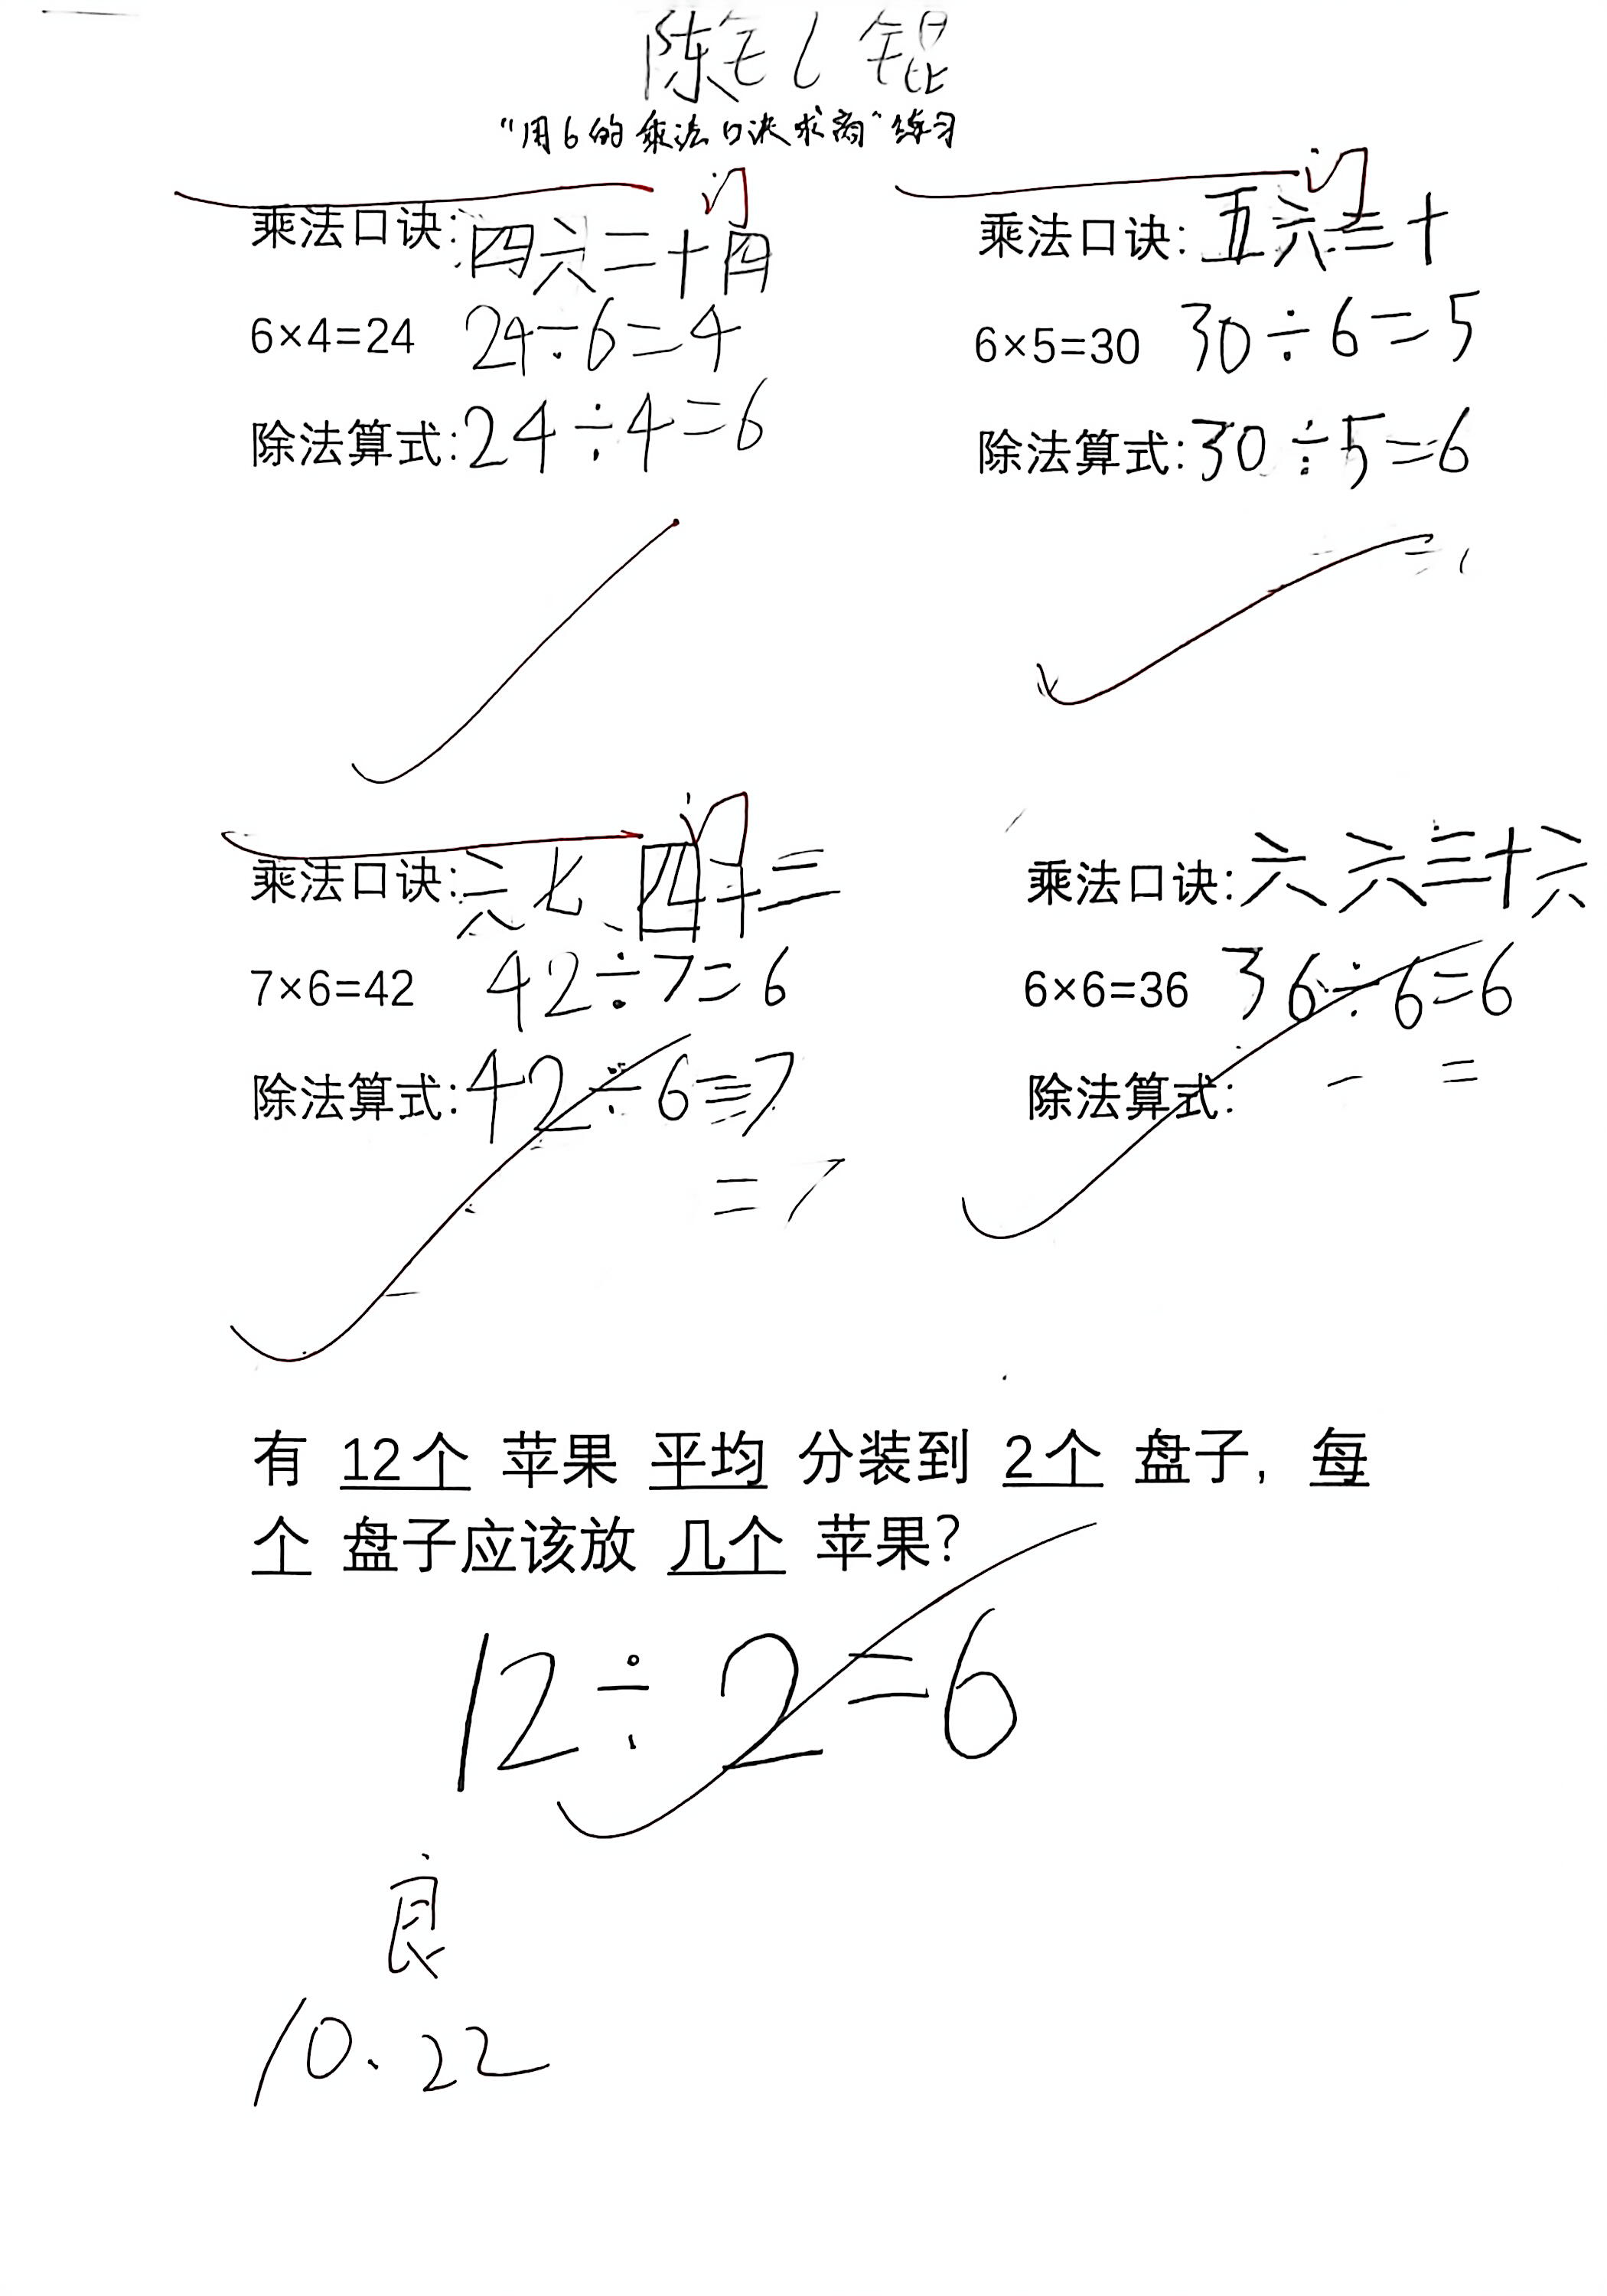 陈 锟
“用6的乘法口诀求商”练习
乘法口诀:四六二十四
6×4=24 24÷6=4
除法算式:24÷4=6
乘法口诀:五六三十
6×5=30 30÷6=5
除法算式:30÷5=6
乘法口诀:六七四十二
7×6=42 42÷7=6
除法算式:42÷6=7
=7
乘法口诀:六六三十六
6×6=36 36÷6=6
除法算式:
有 12个 苹果 平均 分装到 2个 盘子, 每
个 盘子应该放 几个 苹果?
12÷2=6
良
10.22